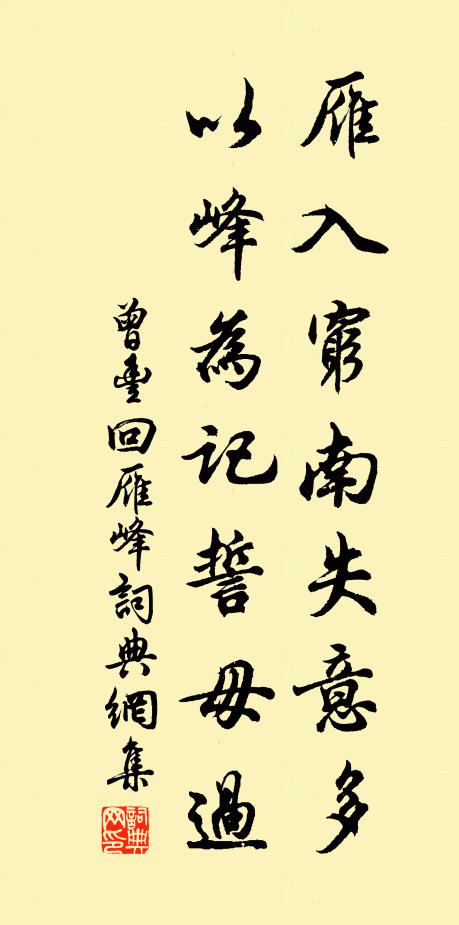 雁入窮南失意多
以峰為記誓毋過
曾豐回雁峰詞典網集
詞典网印